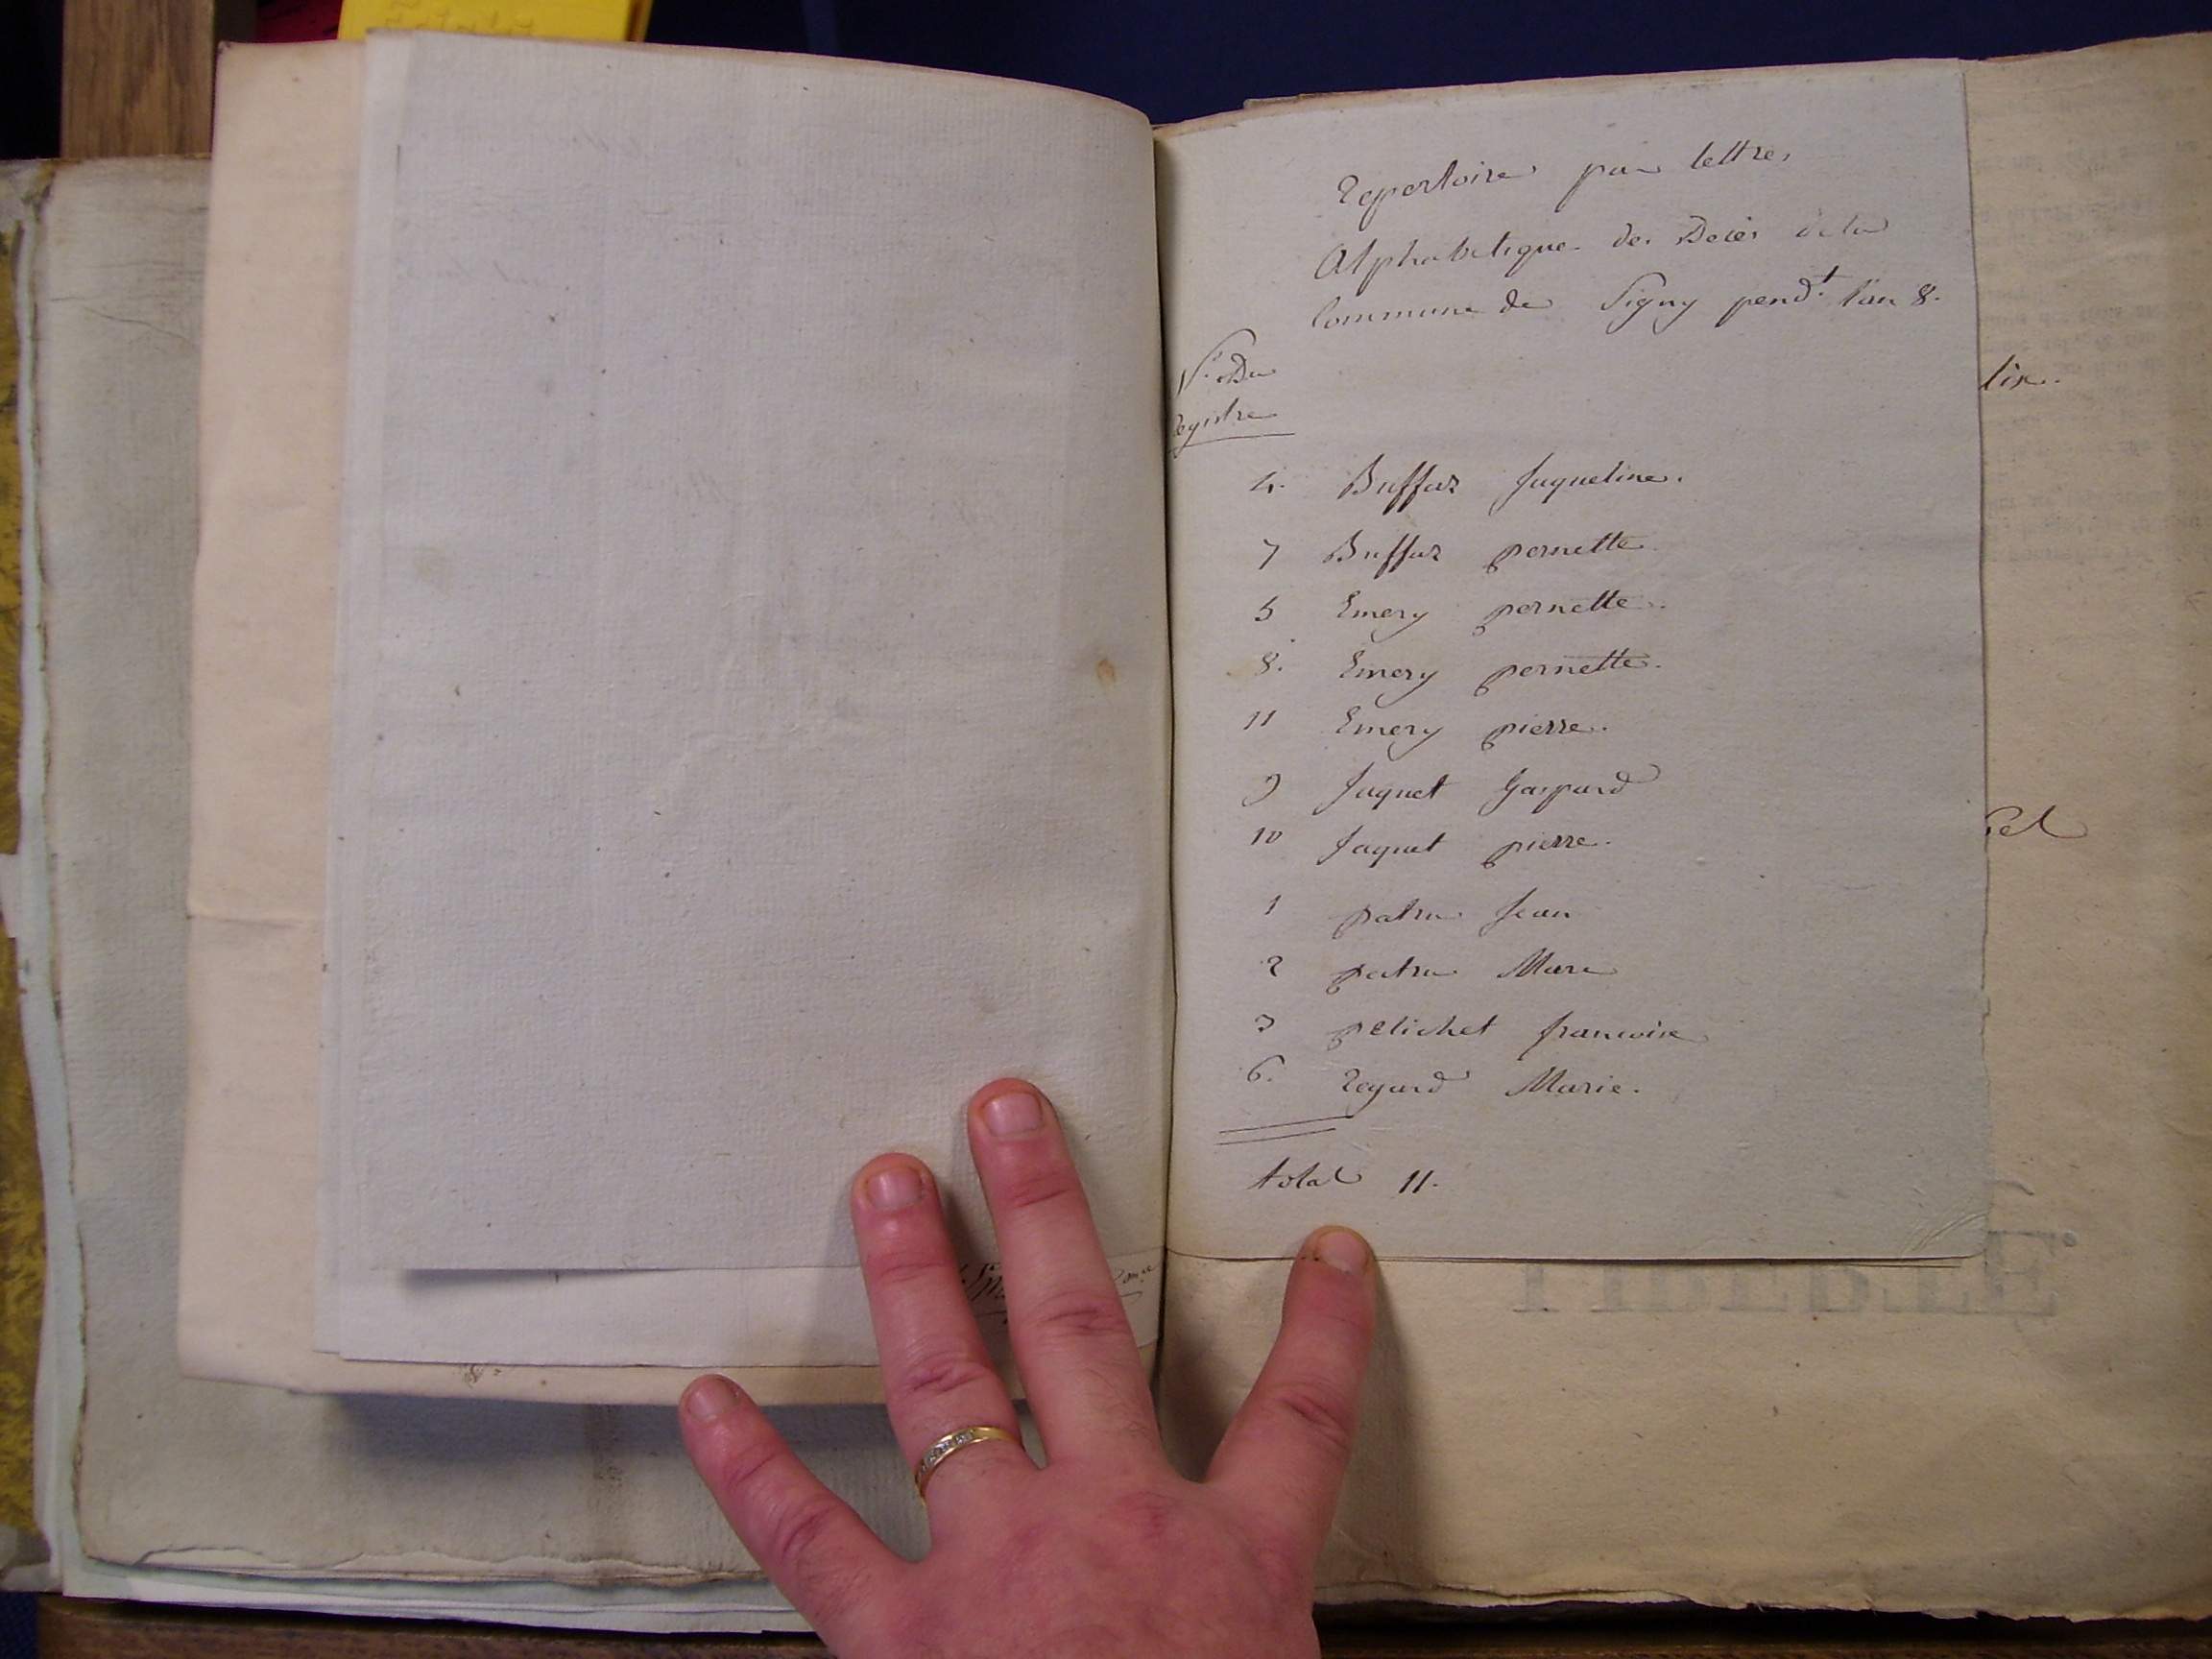 Repertoire par lettres
Alphabetique des Décès de la
Commune de Signy pend.t l'an 8.
N.o Du
Registre
4. Buffaz Jaqueline.
7 Buffaz pernette
5 Emery pernette.
8. Emery pernette.
11 Emery pierre.
9 Jaquet Gaspard
10 Jaquet pierre.
1 patru Jean
2 patru Marc
3 petichet francoise
6. Regard Marie.
total 11.